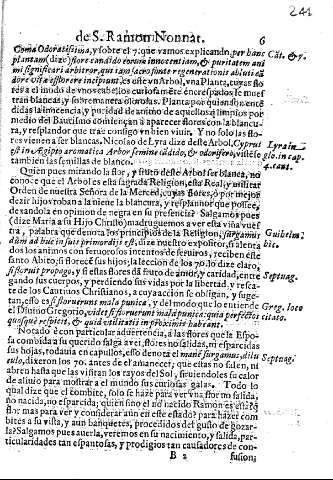 241
de S. Ramon Nonnat. 6
Coma Odoratissima, y sobre el 7: que vamos explicando, per hanc Cãt. &7.
plantam dize flores candido eorum innocentiam, & puritatem ani
mi significari arbitror, qua tam sacro fonte regenerationis abluti
dore vita efflorere incipiunt, es este vn Arbol, vna Planta, cuyas flo
res a el modo de vnos cabellos curiosamẽte encrespados se mues
tran blancas, y sobremanera olorosas. Planta por quian son enté
didas la inocencia, y puridad de animo de aquellos q̃ limpios por
medio del Bautismo comiençan à aparecer flores con la blancu-
ra, y resplandor que trae consigo vn bien viuir. Y no solo las flo-
res vienen a ser blancas. Nicolao de Lyra dize deste Arbol, Cyprus Lyra in
est in Aegipto aromatica Arbor semine cãdido, & odorifero, vistẽse glo. in cap.
tambien las semillas de blanco. 4. cant.
Quien pues mirando la flor, y fruto deste Arbol ser blanca, no
conoce que el Arbol es esta sagrada Religion, esta Real, y militar
Orden de nuestra Señora de la Merced, cuyas flores, ò por mejor
dezir hijos roban a la nieue la blancura, y resplandor que posseê,
dexandola en opinion de negra en su presencia? Salgamos pues
(dize Maria a su Hijo Christo) madruguemos a ver esta viña vuef
tra, palabra que denota los principios de la Religion, surgamus Guihelm.
dum ad huc in suis primordijs est, dize nuestro expositor, si alenta bic.
dos los animos con feruorosos intentos de seruiros, reciben este
santo Abito, si florece sus hijos; la leccion de los 70. lo dize claro;
si floruit propago, y si estas flores dã fruto de amor, y caridad, entre Septuag.
gando sus cuerpos, y perdiendo sus vidas por la libertad, y resca-
te de los Cautiuos Christianos, a cuya accion se obligan, y suge-
tan, esso es si floruerunt mala punica, y del modo que lo entiende Greg. loco
el Diuino Gregorio, videt si floruerunt mala punica: quia perfectos citato.
quosque respicit, & qua vtilitatis in proximis habeant.
Notado è con particular aduertencia, a las flores que la Espo-
sa combida a su querido salga a ver, flores no salidas, ni esparcidas
sus hojas, todauia en capullos, esso denota el manè surgamus, dilu Septuag.
culo, dixeron los 70. antes del amanecer, que estas no salen, ni
abren hasta que las visitan los rayos del Sol, siruiendoles su calor
de aliuio para mostrar a el mundo sus curiosas galas. Todo lo
qual dize que el combite, solo se haze para ver vna flor no salida,
no nacida, no esparcida; quien sino el no nacido Ramon es aquesta
flor mas para ver y considerar aun en este estado? para hazer com
bites a su vista, y aun banquetes, procedidos del gusto de gozar-
la? Salgamos pues a uerla, veremos en su nacimiento, y salida, par-
ticularidades tan espantosas, y prodigios tan causadores de con-
B 2 fusion;